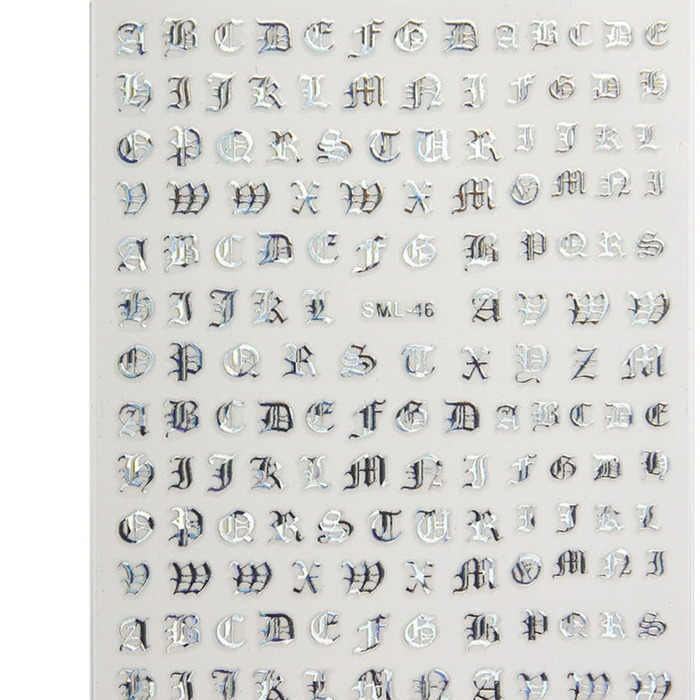 A B C D E F G D A B C D E
H I J K L M N I F G D H
O P Q R S T U R I J K L
V W W X W X M O M N I
A B C D E F G B P Q R S
H I J K L SML-46 A V W W
O P Q R S T X Y Z M
A B C D E F G D A B C D E
H I J K L M N I F G D H
O P Q R S T U R I J K L
V W W X W X M O M N I
A B C D E F G B P Q R S
H I J K L M N A V W W